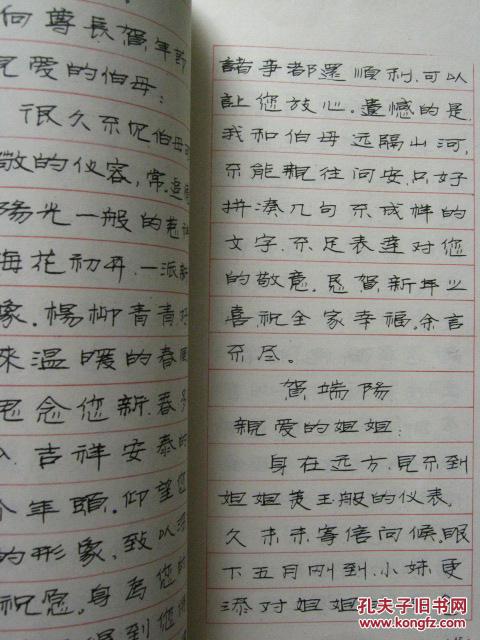 向尊長賀年節
親愛的伯母:
很久不见伯母可
敬的仪容,常追
陽光一般的慈
梅花初开.一派新
象.楊柳青青.
來温暖的春
思念您新.春
入.吉祥安泰的
个年頭.仰望您
的形象.致以深
祝愿.身為您的
得到您
諸事都還順利.可以
讓您放心.遺憾的是
我和伯母远隔山河,
不能親往问安.只好
拼凑几句不成样的
文字.不足表達对您
的敬意.恳賀新年之
喜祝全家幸福.余言
不尽。
賀端陽
親爱的姐姐:
身在远方.見不到
姐姐英玉般的仪表.
久未未寄信问候.眼
下五月刚到.小妹更
添对姐姐
孔夫子旧书网